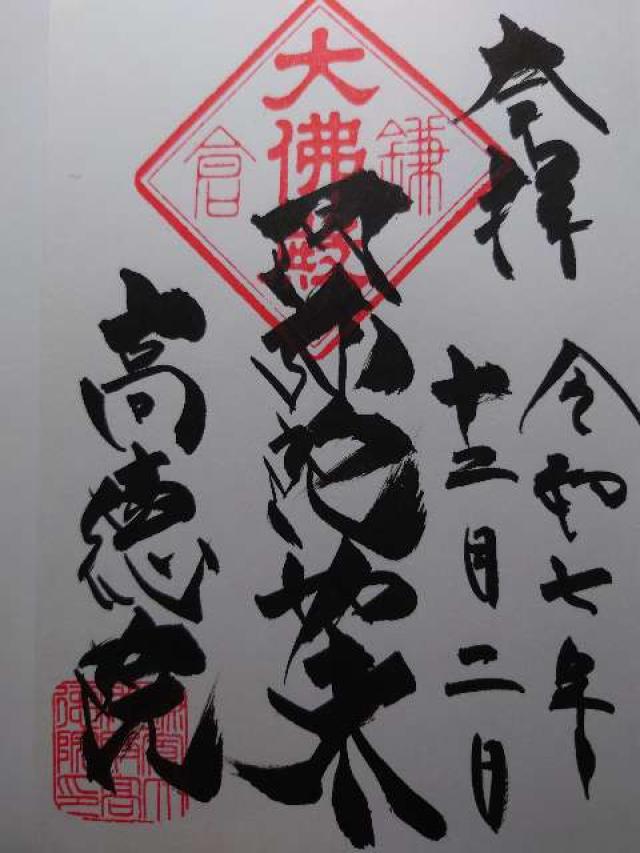 奉拝
令和七年
十二月二日
鎌倉
大佛殿
阿弥陀如来
高徳院